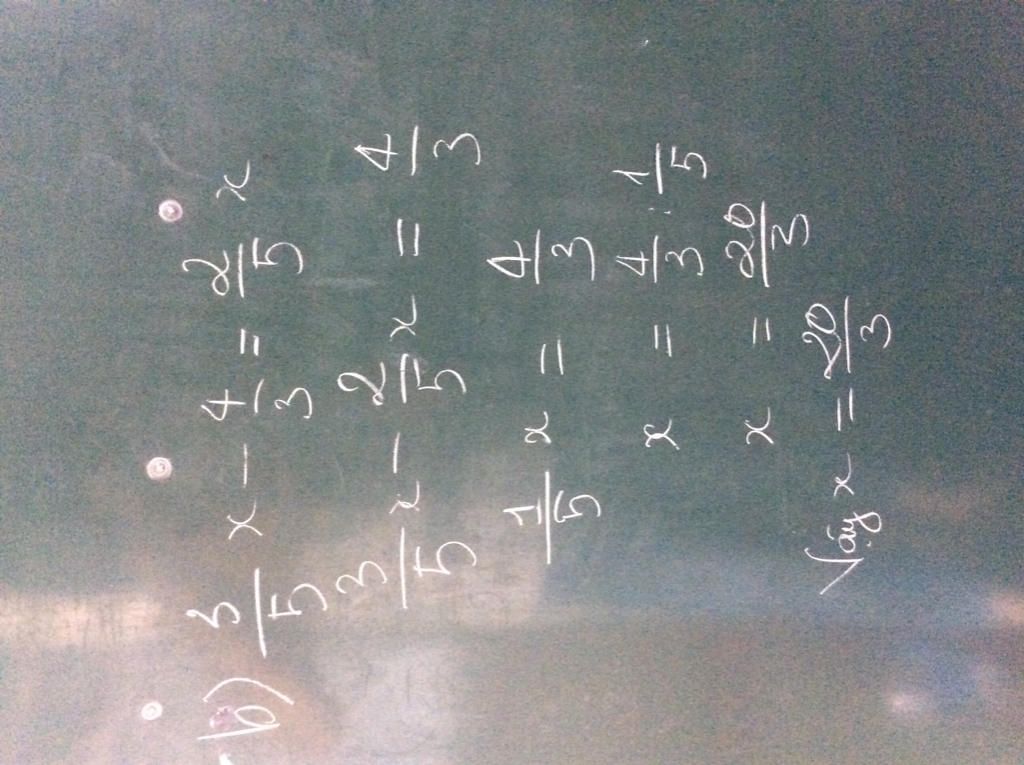 b) 3/5 x - 4/3 = 2/5 x
3/5 x - 2/5 x = 4/3
1/5 x = 4/3
x = 4/3 : 1/5
x = 20/3
Vậy x = 20/3